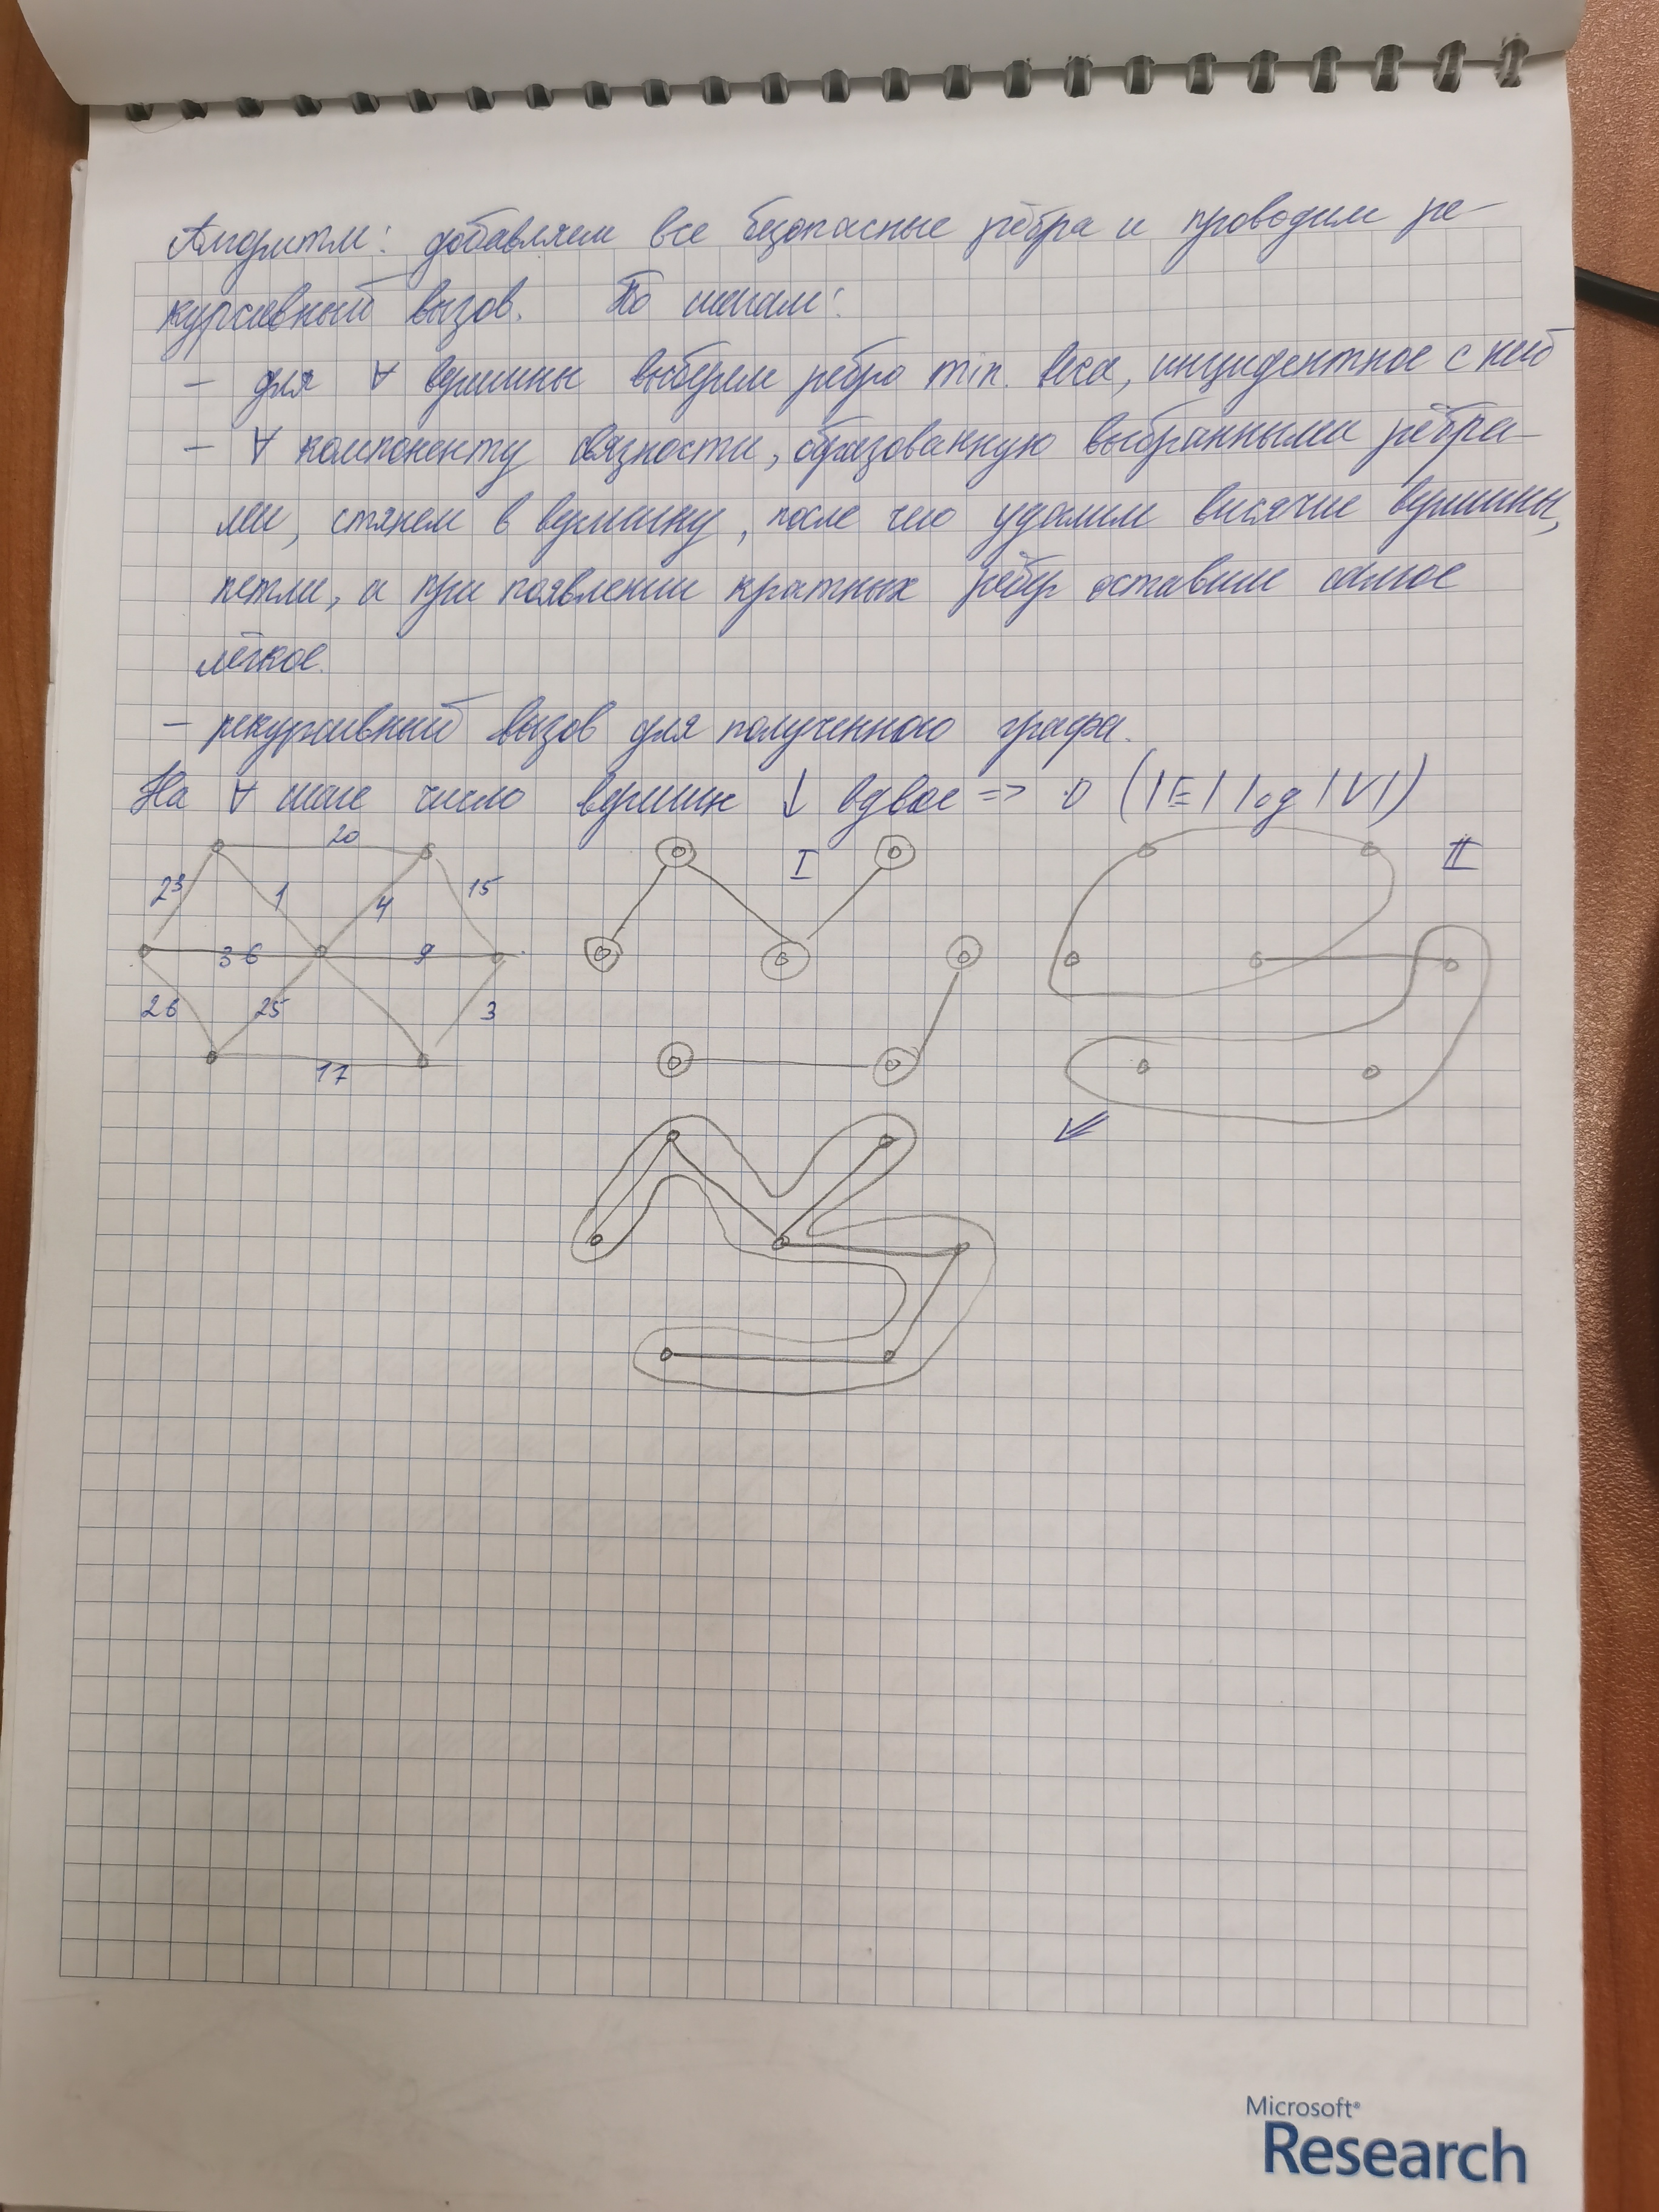 Алгоритм: добавляем все безопасные рёбра и проводим ре-
курсивный вызов. По шагам:
– для ∀ вершины выберем ребро min. веса, инцидентное с ней
– ∀ компоненту связности, образованную выбранными рёбра-
ми, стянем в вершину, после чего удалим висячие вершины,
петли, а при появлении кратных рёбер оставим самое
лёгкое.
– рекурсивный вызов для полученного графа.
На ∀ шаге число вершин ↓ вдвое => O (|E| log |V|)
20
I
II
23
1
4
15
36
9
26
25
3
17
Microsoft®
Research